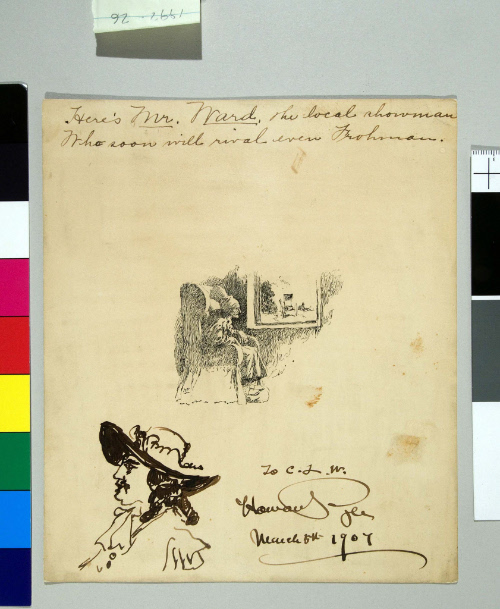 1997-26
Here's Mr. Ward, the local showman
Who soon will rival even Frohman.
To C. L. W.
Howard Pyle
March 5th 1907